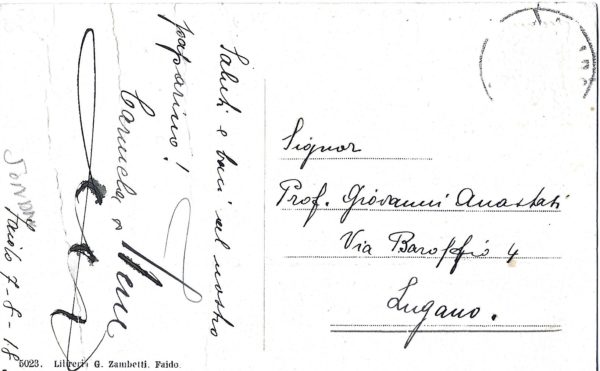 Saluti e baci al nostro
paparino!
Carmela e
Signor
Prof. Giovanni Anastasi
Via Baroffio 4
Lugano.
Faido 7-8-18.
5023. Libreria G. Zambetti. Faido.